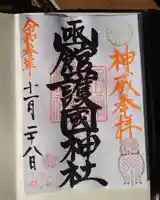 神威奉拝
函館護國神社
令和参年
十一月二十八日